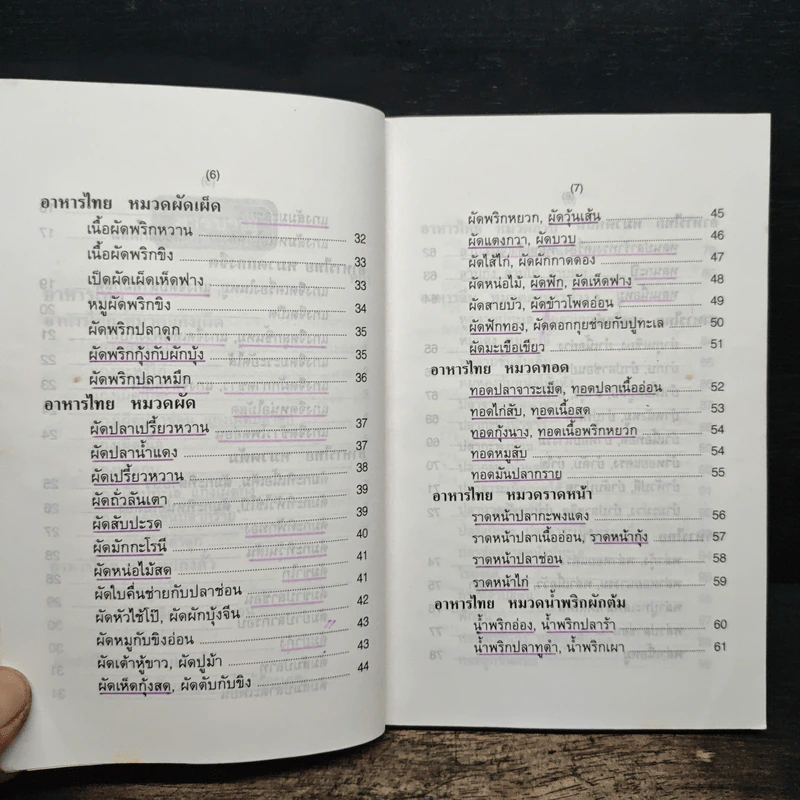 (6)
อาหารไทย หมวดผัดเผ็ด
เนื้อผัดพริกหวาน 32
เนื้อผัดพริกขิง 33
เป็ดผัดเผ็ดเห็ดฟาง 33
หมูผัดพริกขิง 34
ผัดพริกปลาดุก 35
ผัดพริกกุ้งกับผักบุ้ง 35
ผัดพริกปลาหมึก 36
อาหารไทย หมวดผัด
ผัดปลาเปรี้ยวหวาน 37
ผัดปลาน้ำแดง 37
ผัดเปรี้ยวหวาน 38
ผัดถั่วลันเตา 39
ผัดสับปะรด 39
ผัดมักกะโรนี 40
ผัดหน่อไม้สด 41
ผัดใบคื่นช่ายกับปลาช่อน 41
ผัดหัวไช้โป๊, ผัดผักบุ้งจีน 42
ผัดหมูกับขิงอ่อน 43
ผัดเต้าหู้ขาว, ผัดปูม้า 43
ผัดเห็ดกุ้งสด, ผัดตับกับขิง 44
(7)
ผัดพริกหยวก, ผัดวุ้นเส้น 45
ผัดแตงกวา, ผัดบวบ 46
ผัดไส้ไก่, ผัดผักกาดดอง 47
ผัดหน่อไม้, ผัดฟัก, ผัดเห็ดฟาง 48
ผัดสายบัว, ผัดข้าวโพดอ่อน 49
ผัดฟักทอง, ผัดดอกกุยช่ายกับปูทะเล 50
ผัดมะเขือเขียว 51
อาหารไทย หมวดทอด
ทอดปลาจาระเม็ด, ทอดปลาเนื้ออ่อน 52
ทอดไก่สับ, ทอดเนื้อสด 53
ทอดกุ้งนาง, ทอดเนื้อพริกหยวก 54
ทอดหมูสับ 54
ทอดมันปลากราย 55
อาหารไทย หมวดราดหน้า
ราดหน้าปลากะพงแดง 56
ราดหน้าปลาเนื้ออ่อน, ราดหน้ากุ้ง 57
ราดหน้าปลาช่อน 58
ราดหน้าไก่ 59
อาหารไทย หมวดน้ำพริกผักต้ม
น้ำพริกอ่อง, น้ำพริกปลาร้า 60
น้ำพริกปลาทูตำ, น้ำพริกเผา 61